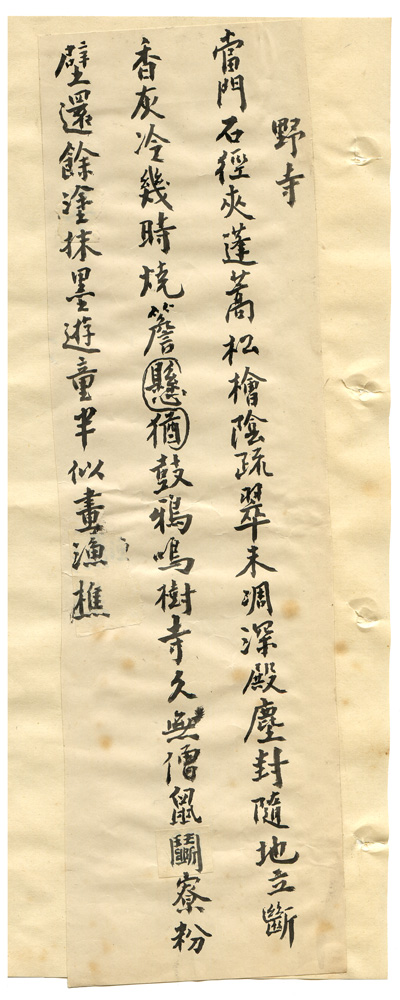 野寺
當門石徑夾蓬蒿松檜陰疏翠未凋深殿塵封隨地立斷
香灰冷幾時燒簷懸猶鼓鴉鳴樹寺久無僧鼠鬭寮粉
壁還餘塗抹墨遊童半似畫漁樵